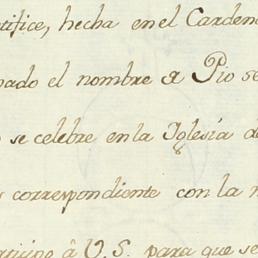 tifice, hecha en el Carden
pado el nombre de Pio se
se celebre en la Iglesia d
correspondiente con la n
ticipo â V. S. para que se